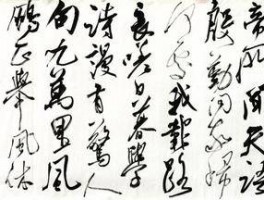 帝所聞天語
殷勤問我歸
何處我報路
長嗟日暮學
詩漫有驚人
句九萬里風
鵬正舉風休